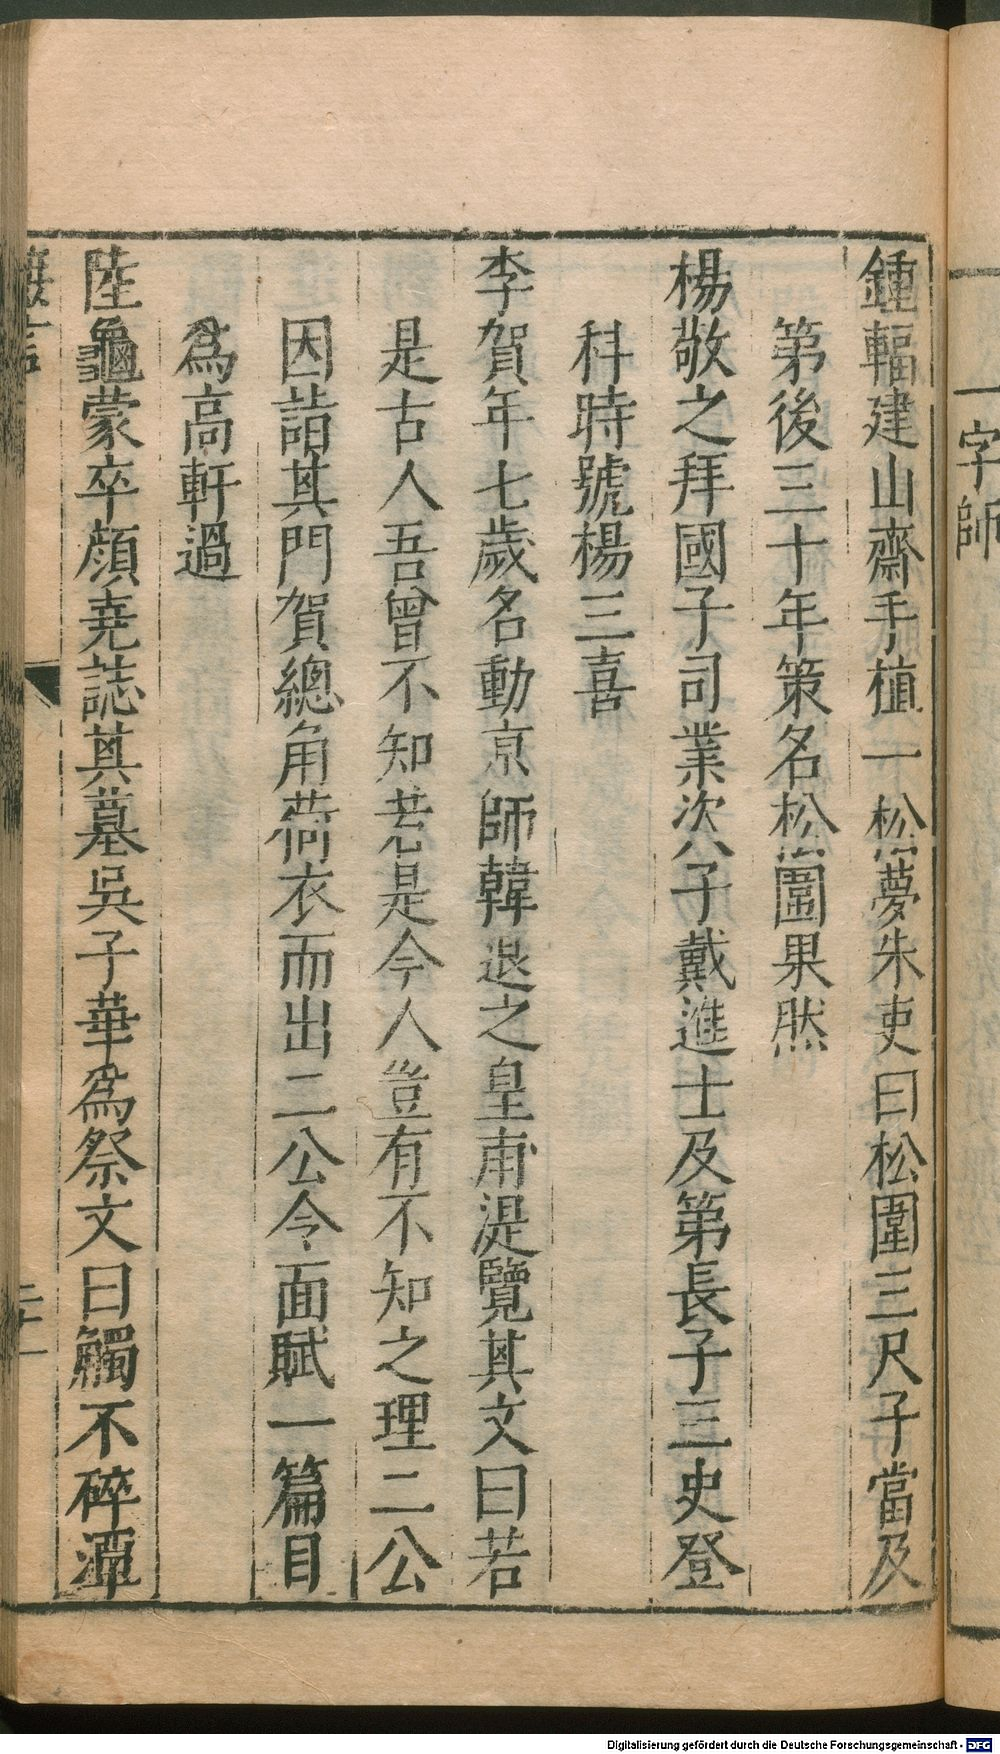 一字師
鍾輻建山齋手植一松夢朱吏曰松圍三尺子當及
第後三十年策名松圍果然
楊敬之拜國子司業次子戴進士及第長子三史登
科時號楊三喜
李賀年七歲名動京師韓退之皇甫湜覽其文曰若
是古人吾曾不知若是今人豈有不知之理二公
因詣其門賀總角荷衣而出二公令面賦一篇目
為高軒過
陸龜蒙卒顏堯誌其墓吳子華為祭文曰觸不碎潭
Digitalisierung gefördert durch die Deutsche Forschungsgemeinschaft - DFG